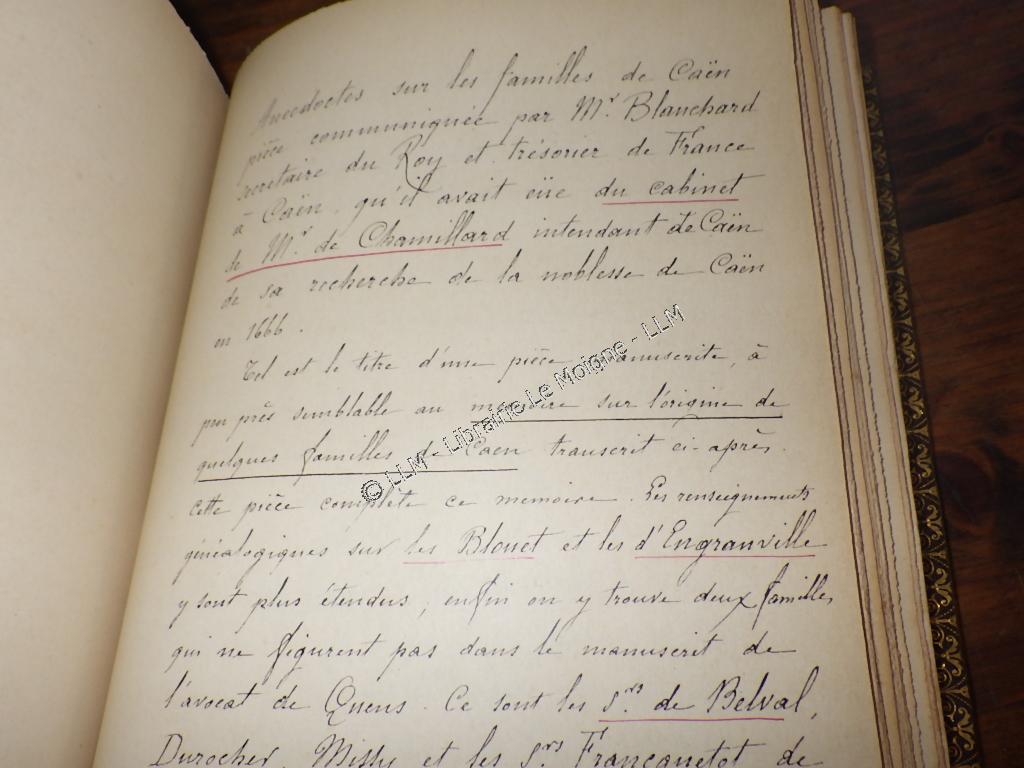 Anecdoctes sur les familles de Caën
pièce communiquée par Mr. Blanchard
secretaire du Roy et trésorier de France
à Caën, qu'il avait eüe du cabinet
de Mr. de Chamillard intendant de Caën
de sa recherche de la noblesse de Caën
en 1666.
Tel est le titre d'une pièce manuscrite, à
peu près semblable au memoire sur l'origine de
quelques familles de Caen transcrit ci-après.
cette pièce complète ce memoire. Les renseignements
généalogiques sur les Blouet et les d'Engranville
y sont plus étendus, enfin on y trouve deux familles
qui ne figurent pas dans le manuscrit de
l'avocat de Quens. Ce sont les Srs de Belval,
Durocher, Missy et les Srs Franquetot de
© LLM - Librairie Le Moigne - LLM